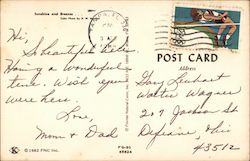 Sunshine and Breeze
Hi,
Beautiful here.
Having a wonderful
time. Wish you
were here.
Love,
Mom & Dad
POST CARD
Address
Gary Linhart
Walter Wagner
207 Jackson St
Defiance, Ohio
43512
© 1982 FNC Inc.